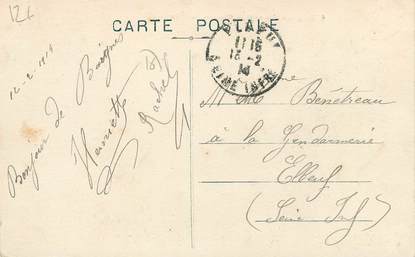 12 f
CARTE POSTALE
11 15
13-2
SEINE INFRE
12-2-1914
Bonjour de
Henriette et
Rachel
Mme Bénétreau
à la Gendarmerie
Elbeuf
(Seine Inf)